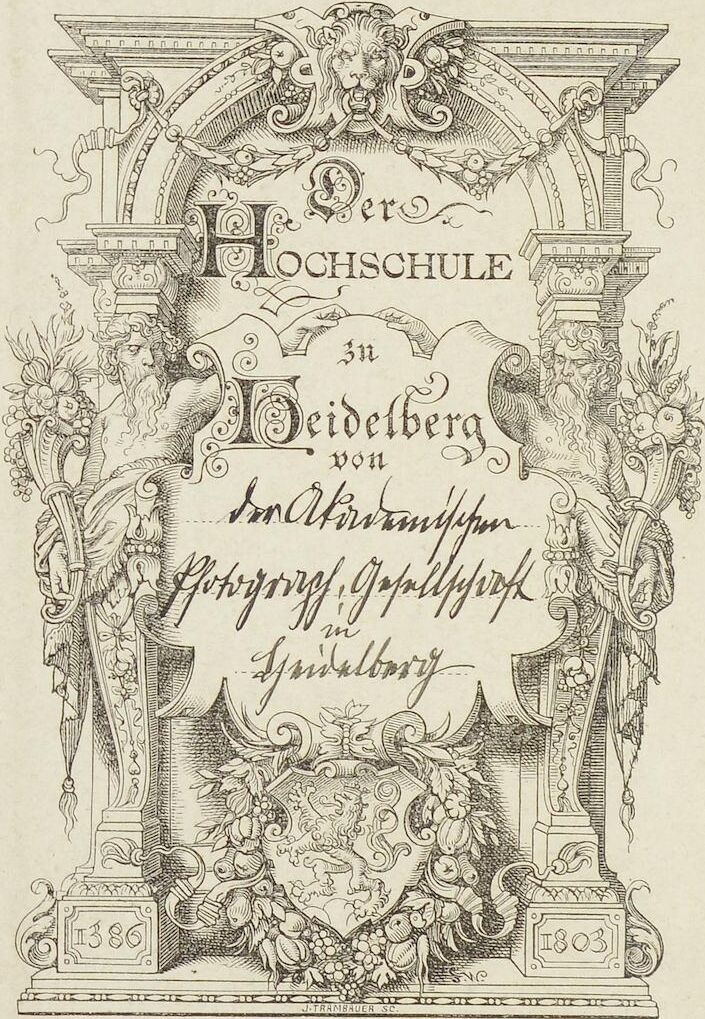 Der
HOCHSCHULE
zu
Heidelberg
von
der Akademischen
Photograph. Gesellschaft
in
Heidelberg
1386
1803
J. TRAMBAUER SC.